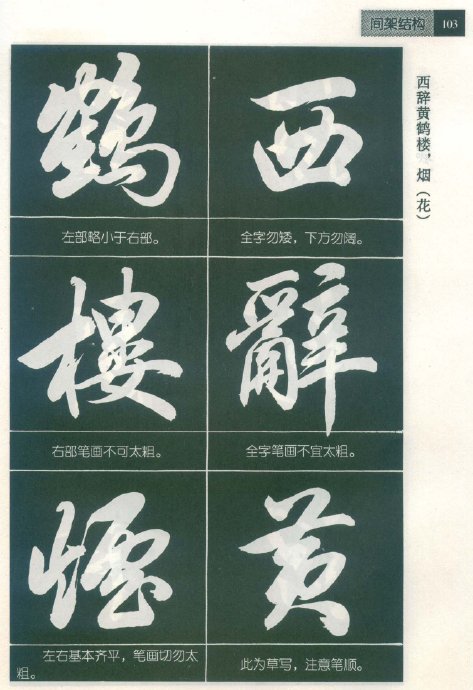 间架结构 103
西辞黄鹤楼，烟（花）
西
全字勿矮，下方勿阔。
辭
全字笔画不宜太粗。
黄
此为草写，注意笔顺。
鶴
左部略小于右部。
樓
右部笔画不可太粗。
煙
左右基本齐平，笔画切勿太
粗。